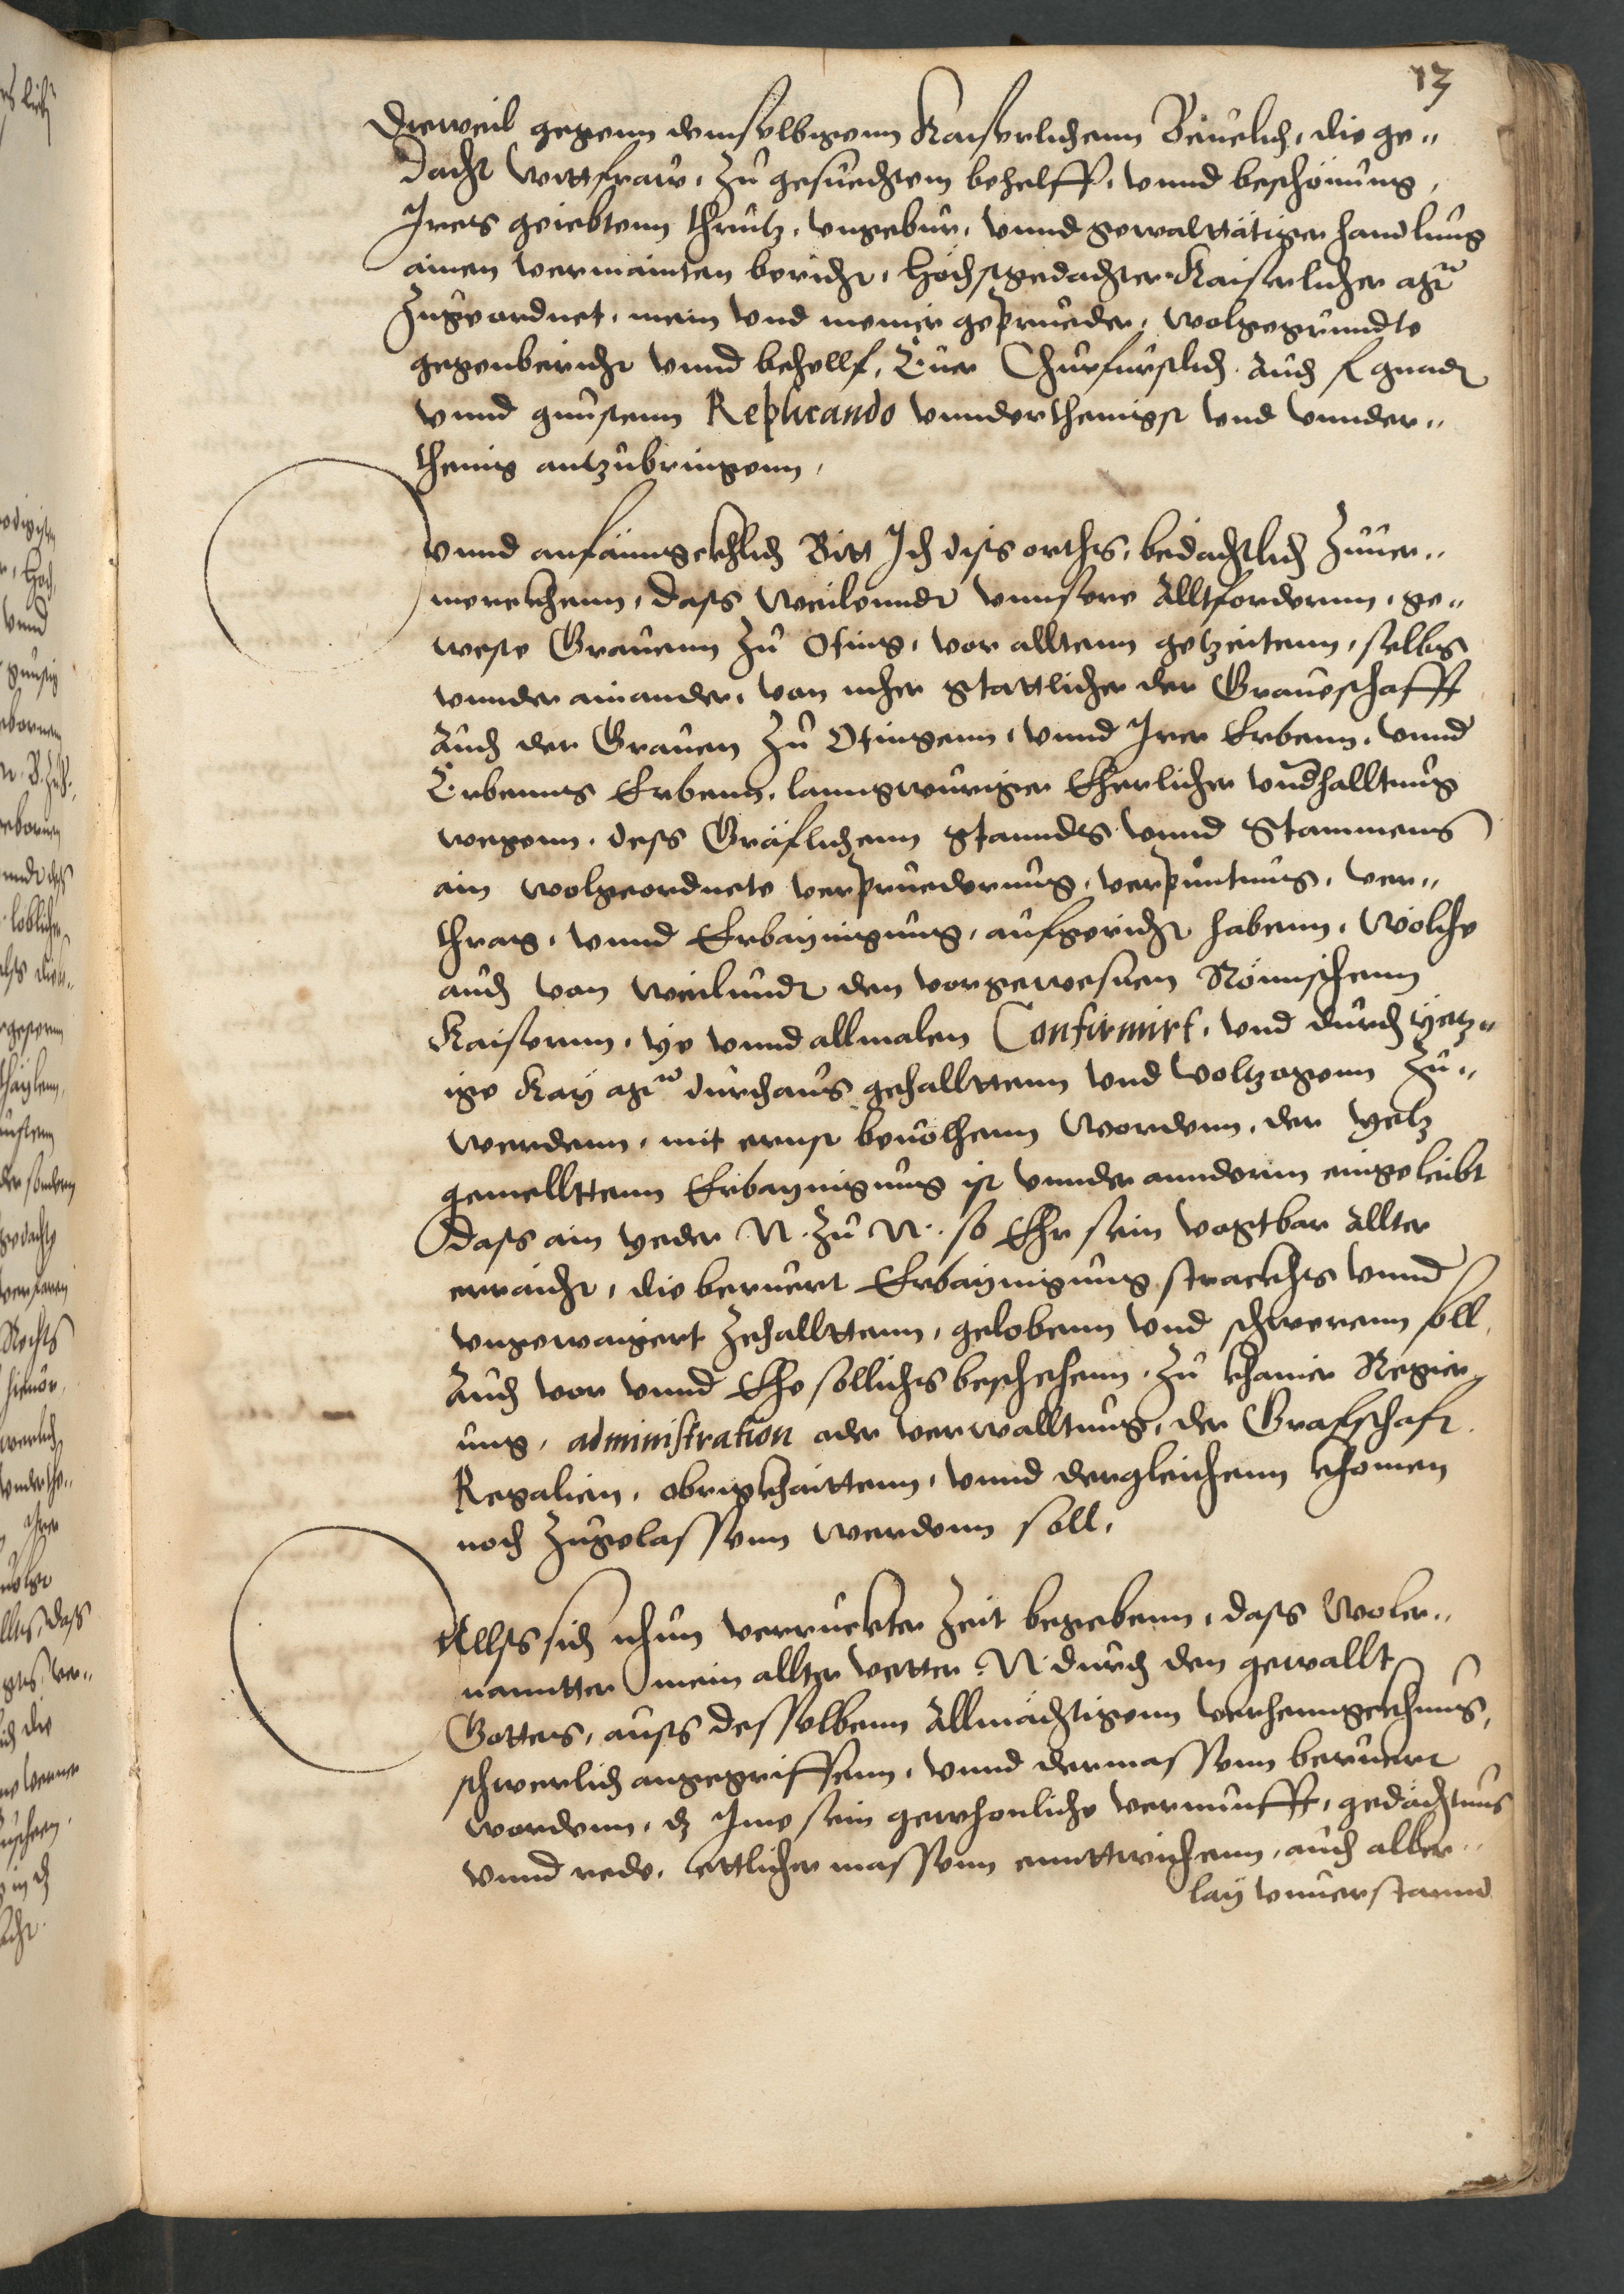 13
Dieweil gegenn demselbigenn Kaiserlichenn Beuelch, die ge„
dacht wittfraw, zu gesuechtem behelff, vnnd beschönung,
Jrers geiebtenn thrutz, vngebur, vnnd gewalttätiger handlung
ainen vermainten bericht, Höchstgedachter Kaiserlicher Mt
zugeordnet, mein vnd meiner geprueder, wolgegrundte
gegenbericht vnnd behellf, Euer Churfurstlich. Auch f gnad
vnnd gunstenn Replicando vnnderthenigst vnd vnnder„
thenig antzubringenn,
Vnnd anfänngckhlich Bitt Jch diss orths, bedächtlich zuuer„
merckhenn, dass Weilenndt vnnsere Alltfordernn, ge„
weste Grauenn zu Oting, vor alltenn getzeitenn, selbs
vnnder ainander, von mher stattlicher der Graueschafft
Auch der Grauen zu Otingenn, vnnd Jrer Erbenn, vnnd
Erbenns Erbenn, lanngwuriger Eherlicher vndhalltung
wegenn, dess Gräflichenn Stanndts vnnd Stammens
ain wolgeordnete verpruederung, verpuntnus, ver„
thrag, vnnd Erbaynigung, aufgericht habenn, Wölche
auch von Weilundt den vorgewesnen Römischenn
Kaisernn, ye vnnd allmalen Confirmirt, vnd durch yetz„
ige Kay Mt durchaus gehallttenn vnd voltzogenn zu„
werdenn, mit ernst beuolhenn Wordenn, der yetz
gemellttenn Erbaynigung ist vnnder anndernn eingeleibt
Dass ain yeder N. zu N. so Ehr sein vogtbar Allter
erraicht, die beruert Erbaynigung strackhs vnnd
vngewaigert zehallttenn, gelobenn vnd schwerenn soll,
Auch vor vnnd Ehe sollichs beschehenn, zu khainer Regier„
ung, administration oder verwalltung, der Grafschaft
Regalien, obrigkhaittenn, vnnd dergleichenn khomen
noch zugelassenn werdenn soll,
Allss sich nhun verruckter zeit begebenn, dass Woler„
nanntter mein allter vetter N durch den gewallt
Gottes, auss desselbenn Allmächtigenn verhenngckhnus,
schwerlich angegriffenn, vnnd dermassenn beruert
wordenn, dz Jme sein gewhonliche vernunfft, gedächtnus
vnnd rede, ettlicher massenn enntwichenn, auch aller„
lay vnuerstannd